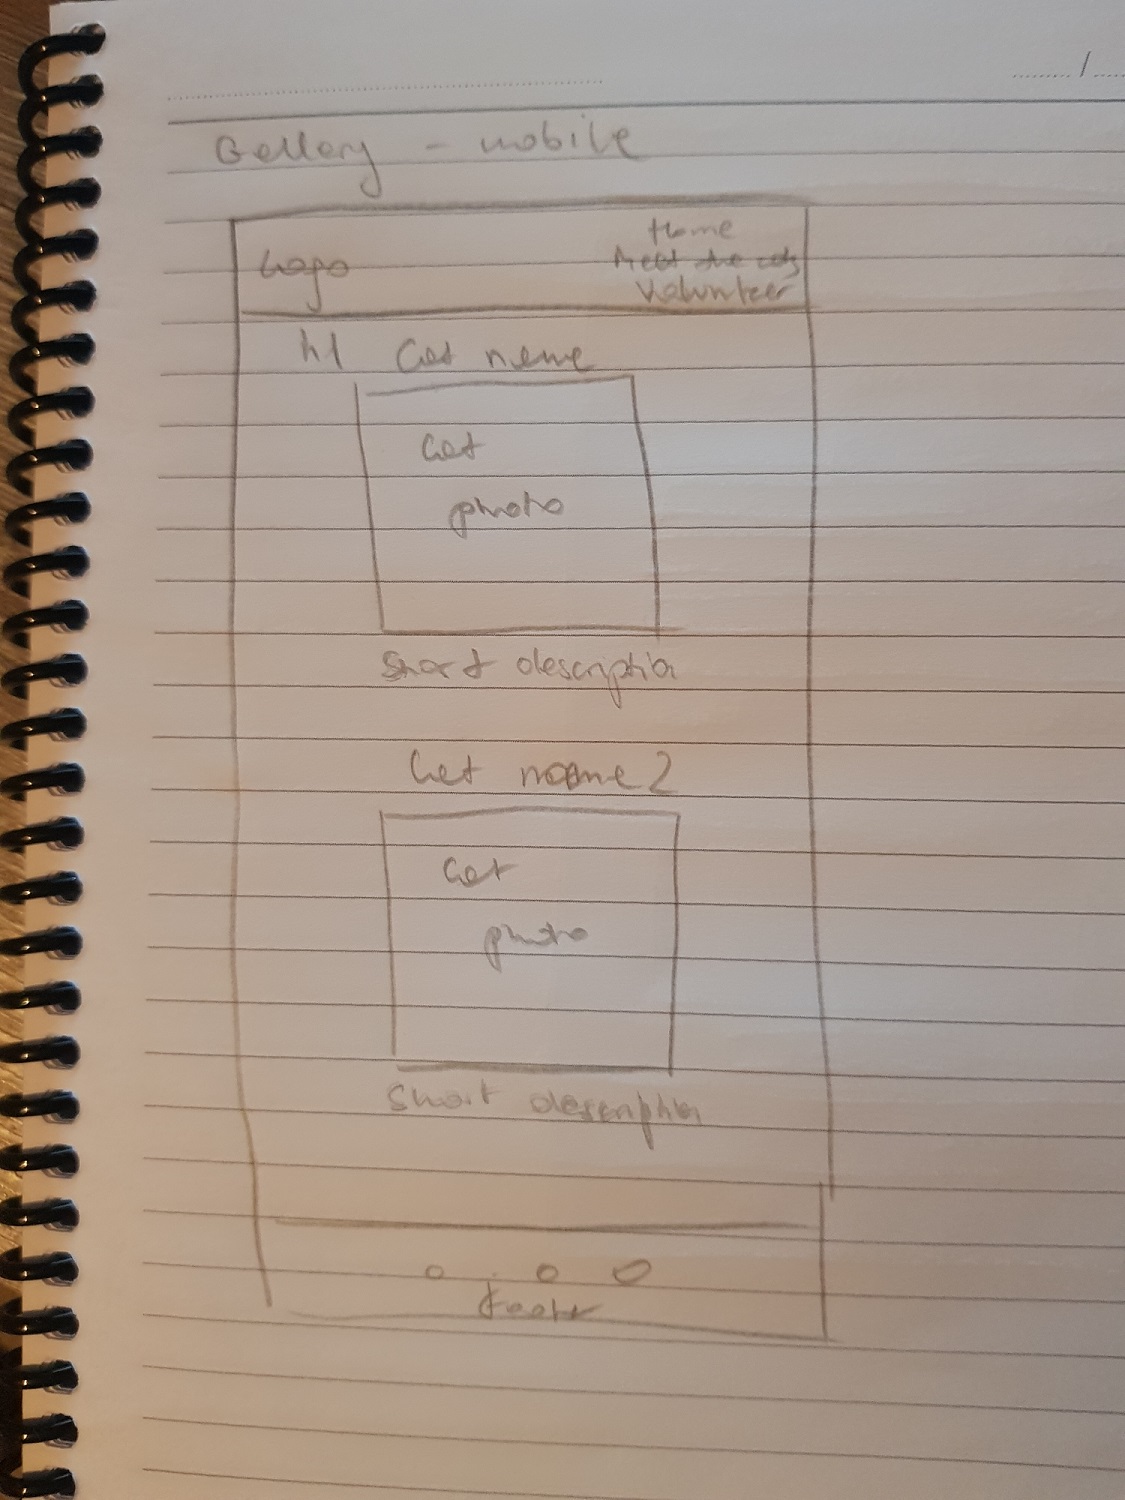 Gallery - mobile
Home
Logo
Meet the cats
Volunteer
h1 Cat name
Cat
photo
Short description
Cat name 2
Cat
photo
Short description
footer